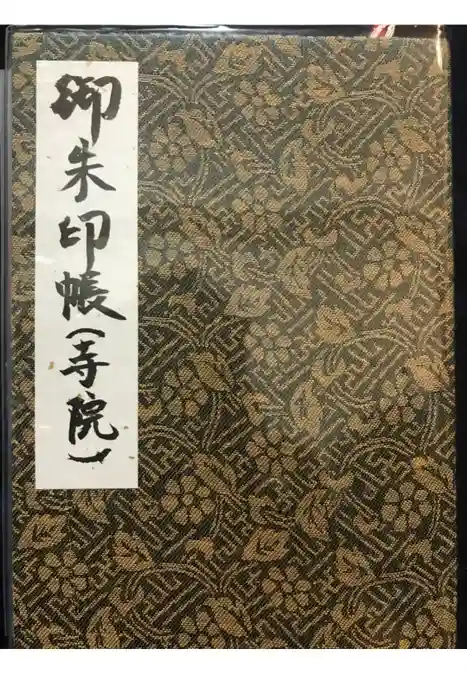 御朱印帳(寺院)